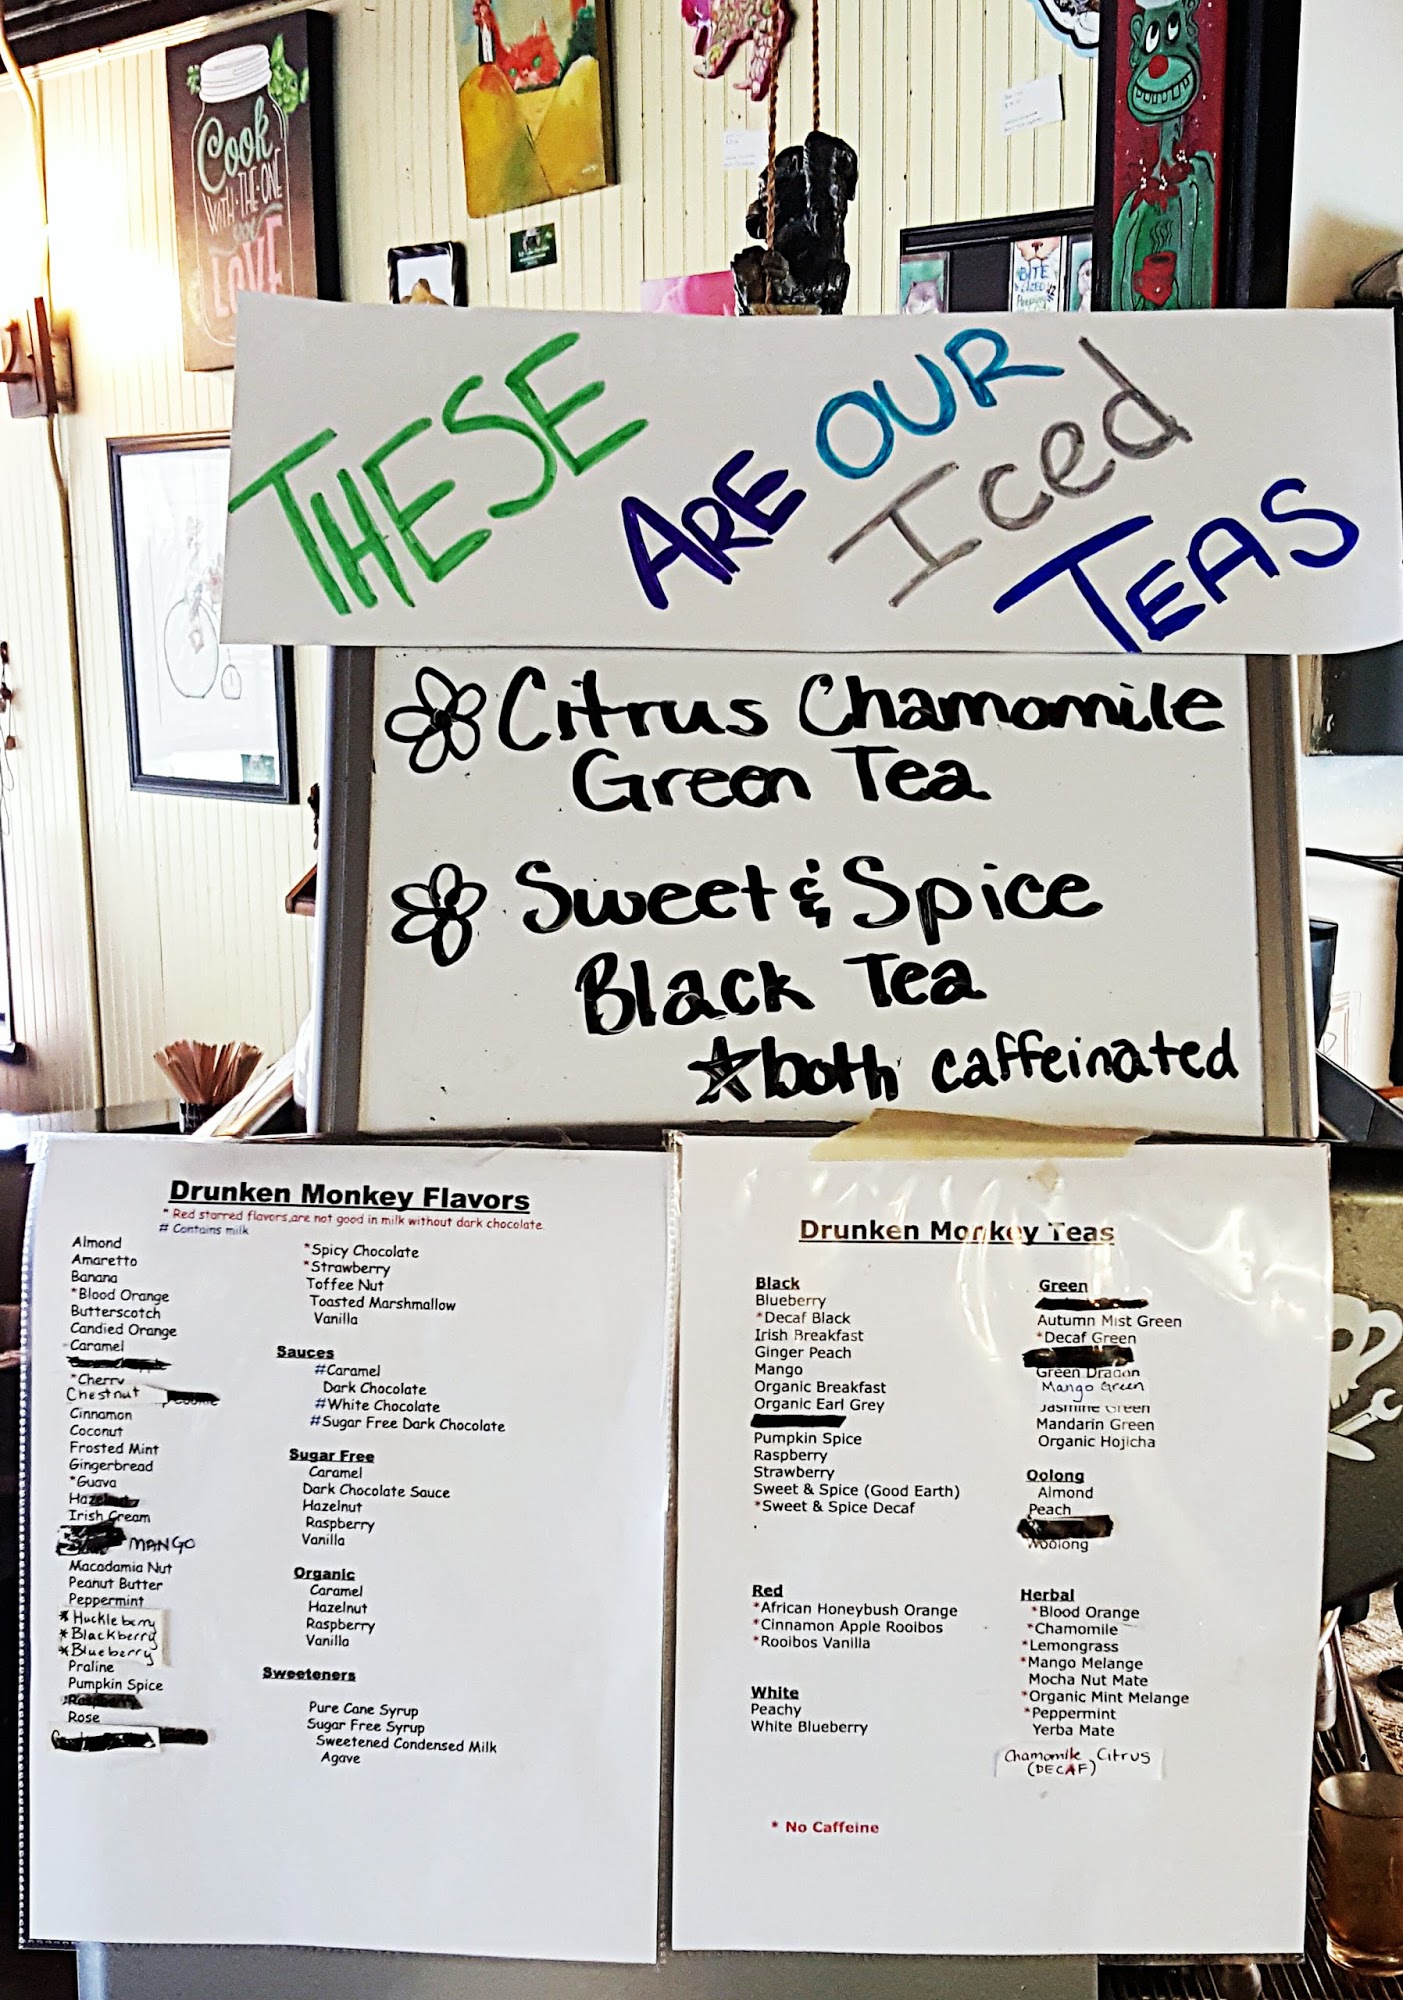 Cook
WITH·THE·ONE
you
LOVE
BITE
THESE ARE OUR Iced TEAS
Citrus Chamomile
Green Tea
Sweet & Spice
Black Tea
both caffeinated
Drunken Monkey Flavors
* Red starred flavors,are not good in milk without dark chocolate.
# Contains milk
Almond
Amaretto
Banana
*Blood Orange
Butterscotch
Candied Orange
Caramel
*Cherry
Chestnut
Cinnamon
Coconut
Frosted Mint
Gingerbread
*Guava
Hazelnut
Irish Cream
MANGO
Macadamia Nut
Peanut Butter
Peppermint
*Huckleberry
*Blackberry
*Blueberry
Praline
Pumpkin Spice
Raspberry
Rose
*Spicy Chocolate
*Strawberry
Toffee Nut
Toasted Marshmallow
Vanilla
Sauces
#Caramel
Dark Chocolate
#White Chocolate
#Sugar Free Dark Chocolate
Sugar Free
Caramel
Dark Chocolate Sauce
Hazelnut
Raspberry
Vanilla
Organic
Caramel
Hazelnut
Raspberry
Vanilla
Sweeteners
Pure Cane Syrup
Sugar Free Syrup
Sweetened Condensed Milk
Agave
Drunken Monkey Teas
Black
Blueberry
*Decaf Black
Irish Breakfast
Ginger Peach
Mango
Organic Breakfast
Organic Earl Grey
Pumpkin Spice
Raspberry
Strawberry
Sweet & Spice (Good Earth)
*Sweet & Spice Decaf
Red
*African Honeybush Orange
*Cinnamon Apple Rooibos
*Rooibos Vanilla
White
Peachy
White Blueberry
* No Caffeine
Green
Autumn Mist Green
*Decaf Green
Green Dragon
Mango Green
Jasmine Green
Mandarin Green
Organic Hojicha
Oolong
Almond
Peach
Woolong
Herbal
*Blood Orange
*Chamomile
*Lemongrass
*Mango Melange
Mocha Nut Mate
*Organic Mint Melange
*Peppermint
Yerba Mate
Chamomile Citrus
(DECAF)